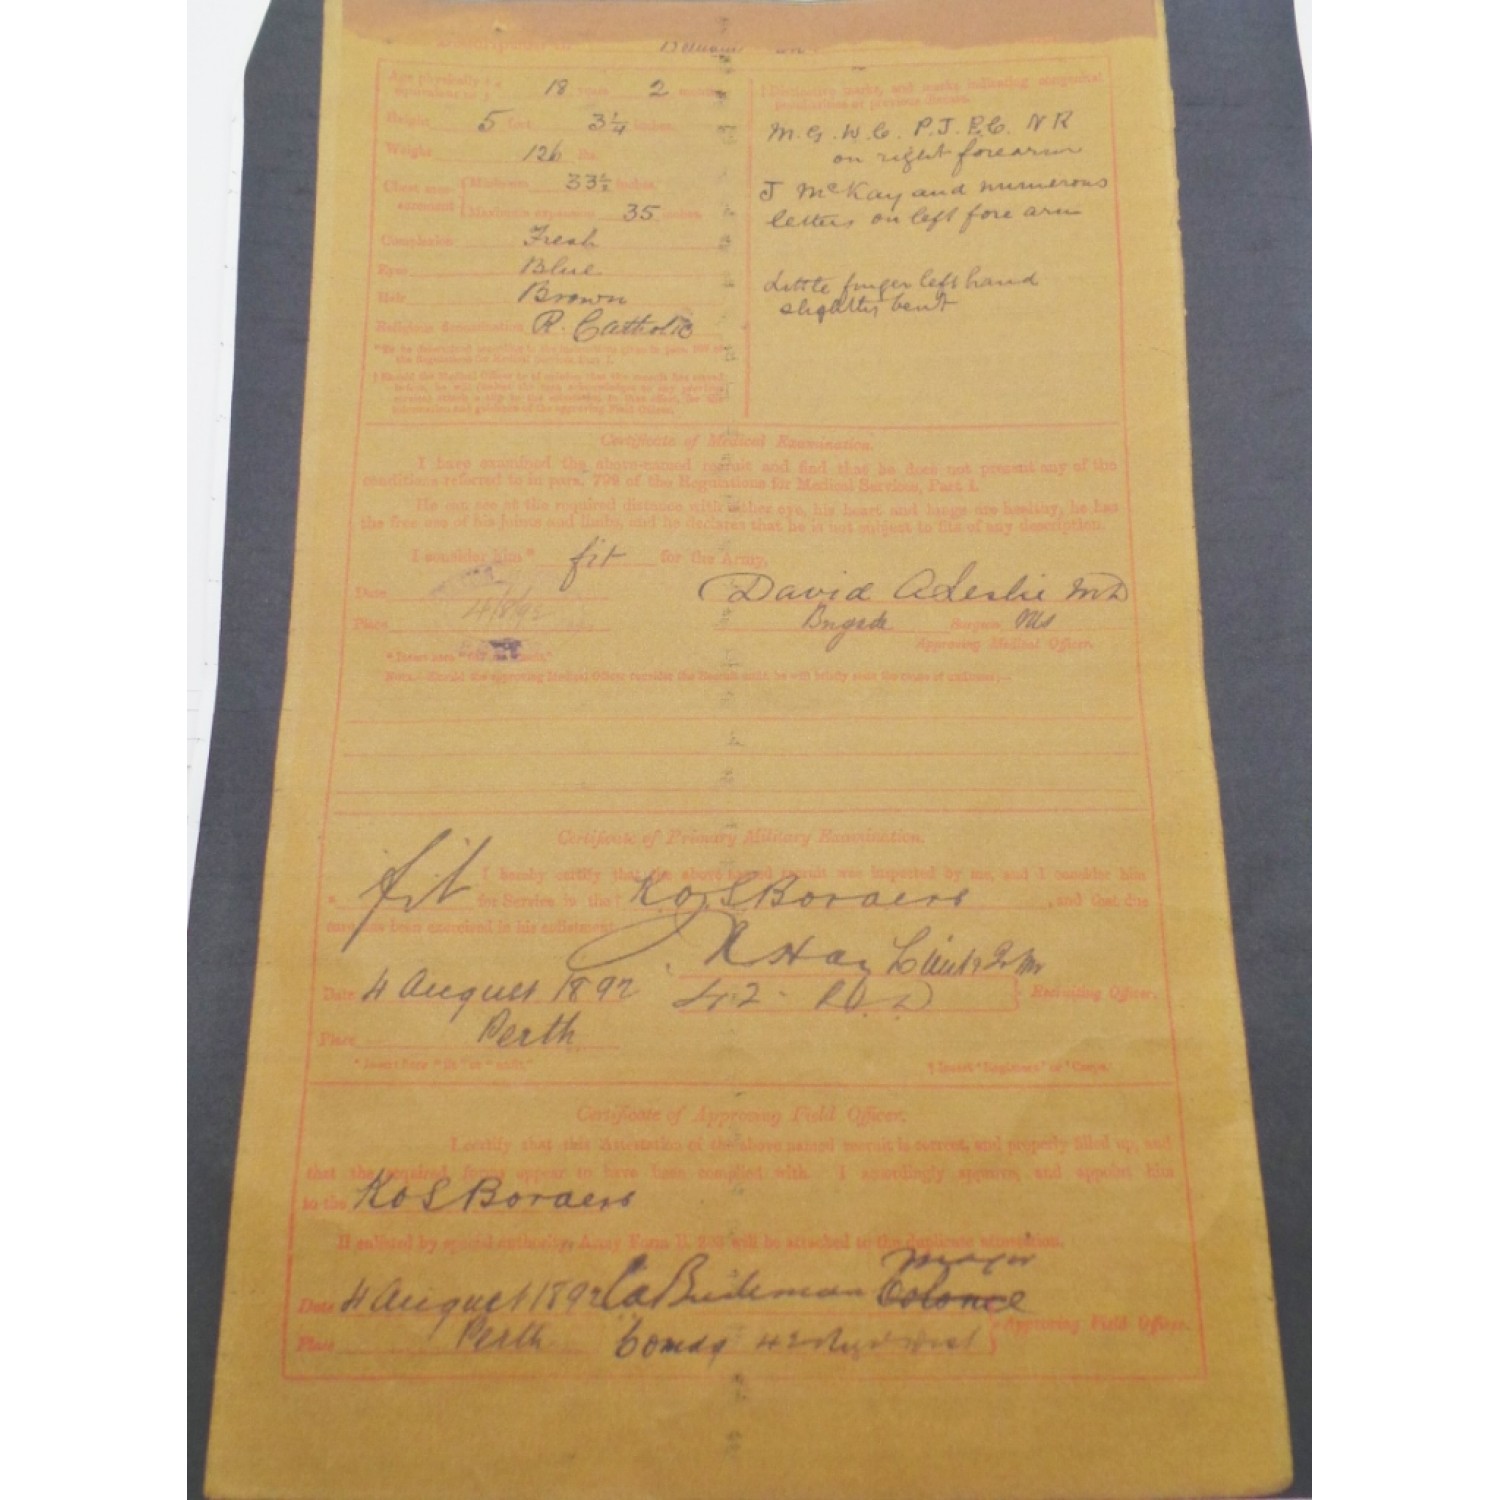 Age physically equivalent to 18 years 2 months
Height 5 feet 3¼ inches
Weight 126 lbs.
Chest measurement Minimum 33½ inches.
Maximum expansion 35 inches
Complexion Fresh
Eyes Blue
Hair Brown
Religious denomination R. Catholic
Distinctive marks, and marks indicating congenital
peculiarities or previous disease.
M. G. W. C. P. J. P. C. N R
on right forearm
J McKay and numerous
letters on left fore arm
Little finger left hand
slightly bent
Certificate of Medical Examination.
I have examined the above-named recruit and find that he does not present any of the
conditions referred to in para. 799 of the Regulations for Medical Services, Part I.
He can see at the required distance with either eye, his heart and lungs are healthy, he has
the free use of his joints and limbs, and he declares that he is not subject to fits of any description.
I consider him* fit for the Army,
Date 4/8/92
Place
David A Leslie MD
Brigade Surgeon MS
Approving Medical Officer.
*Insert here "fit" or "unfit."
NOTE.—Should the approving Medical Officer consider the Recruit unfit, he will briefly state the cause of unfitness:—
Certificate of Primary Military Examination.
I hereby certify that the above-named recruit was inspected by me, and I consider him
* fit for Service in the† K O S Borders, and that due
care has been exercised in his enlistment.
R Hay
Date 4 August 1892 42 R. D. Recruiting Officer.
Place Perth
*Insert here "fit" or "unfit." † Insert "Regiment" or "Corps."
Certificate of Approving Field Officer.
I certify that this Attestation of the above-named recruit is correct, and properly filled up, and
that the required forms appear to have been complied with. I accordingly approve, and appoint him
to the K O S Borders
If enlisted by special authority, Army Form B. 203 will be attached to the duplicate attestation.
Major
Date 4 August 1892 Colonel
Place Perth Comdg 42 Approving Field Officer.